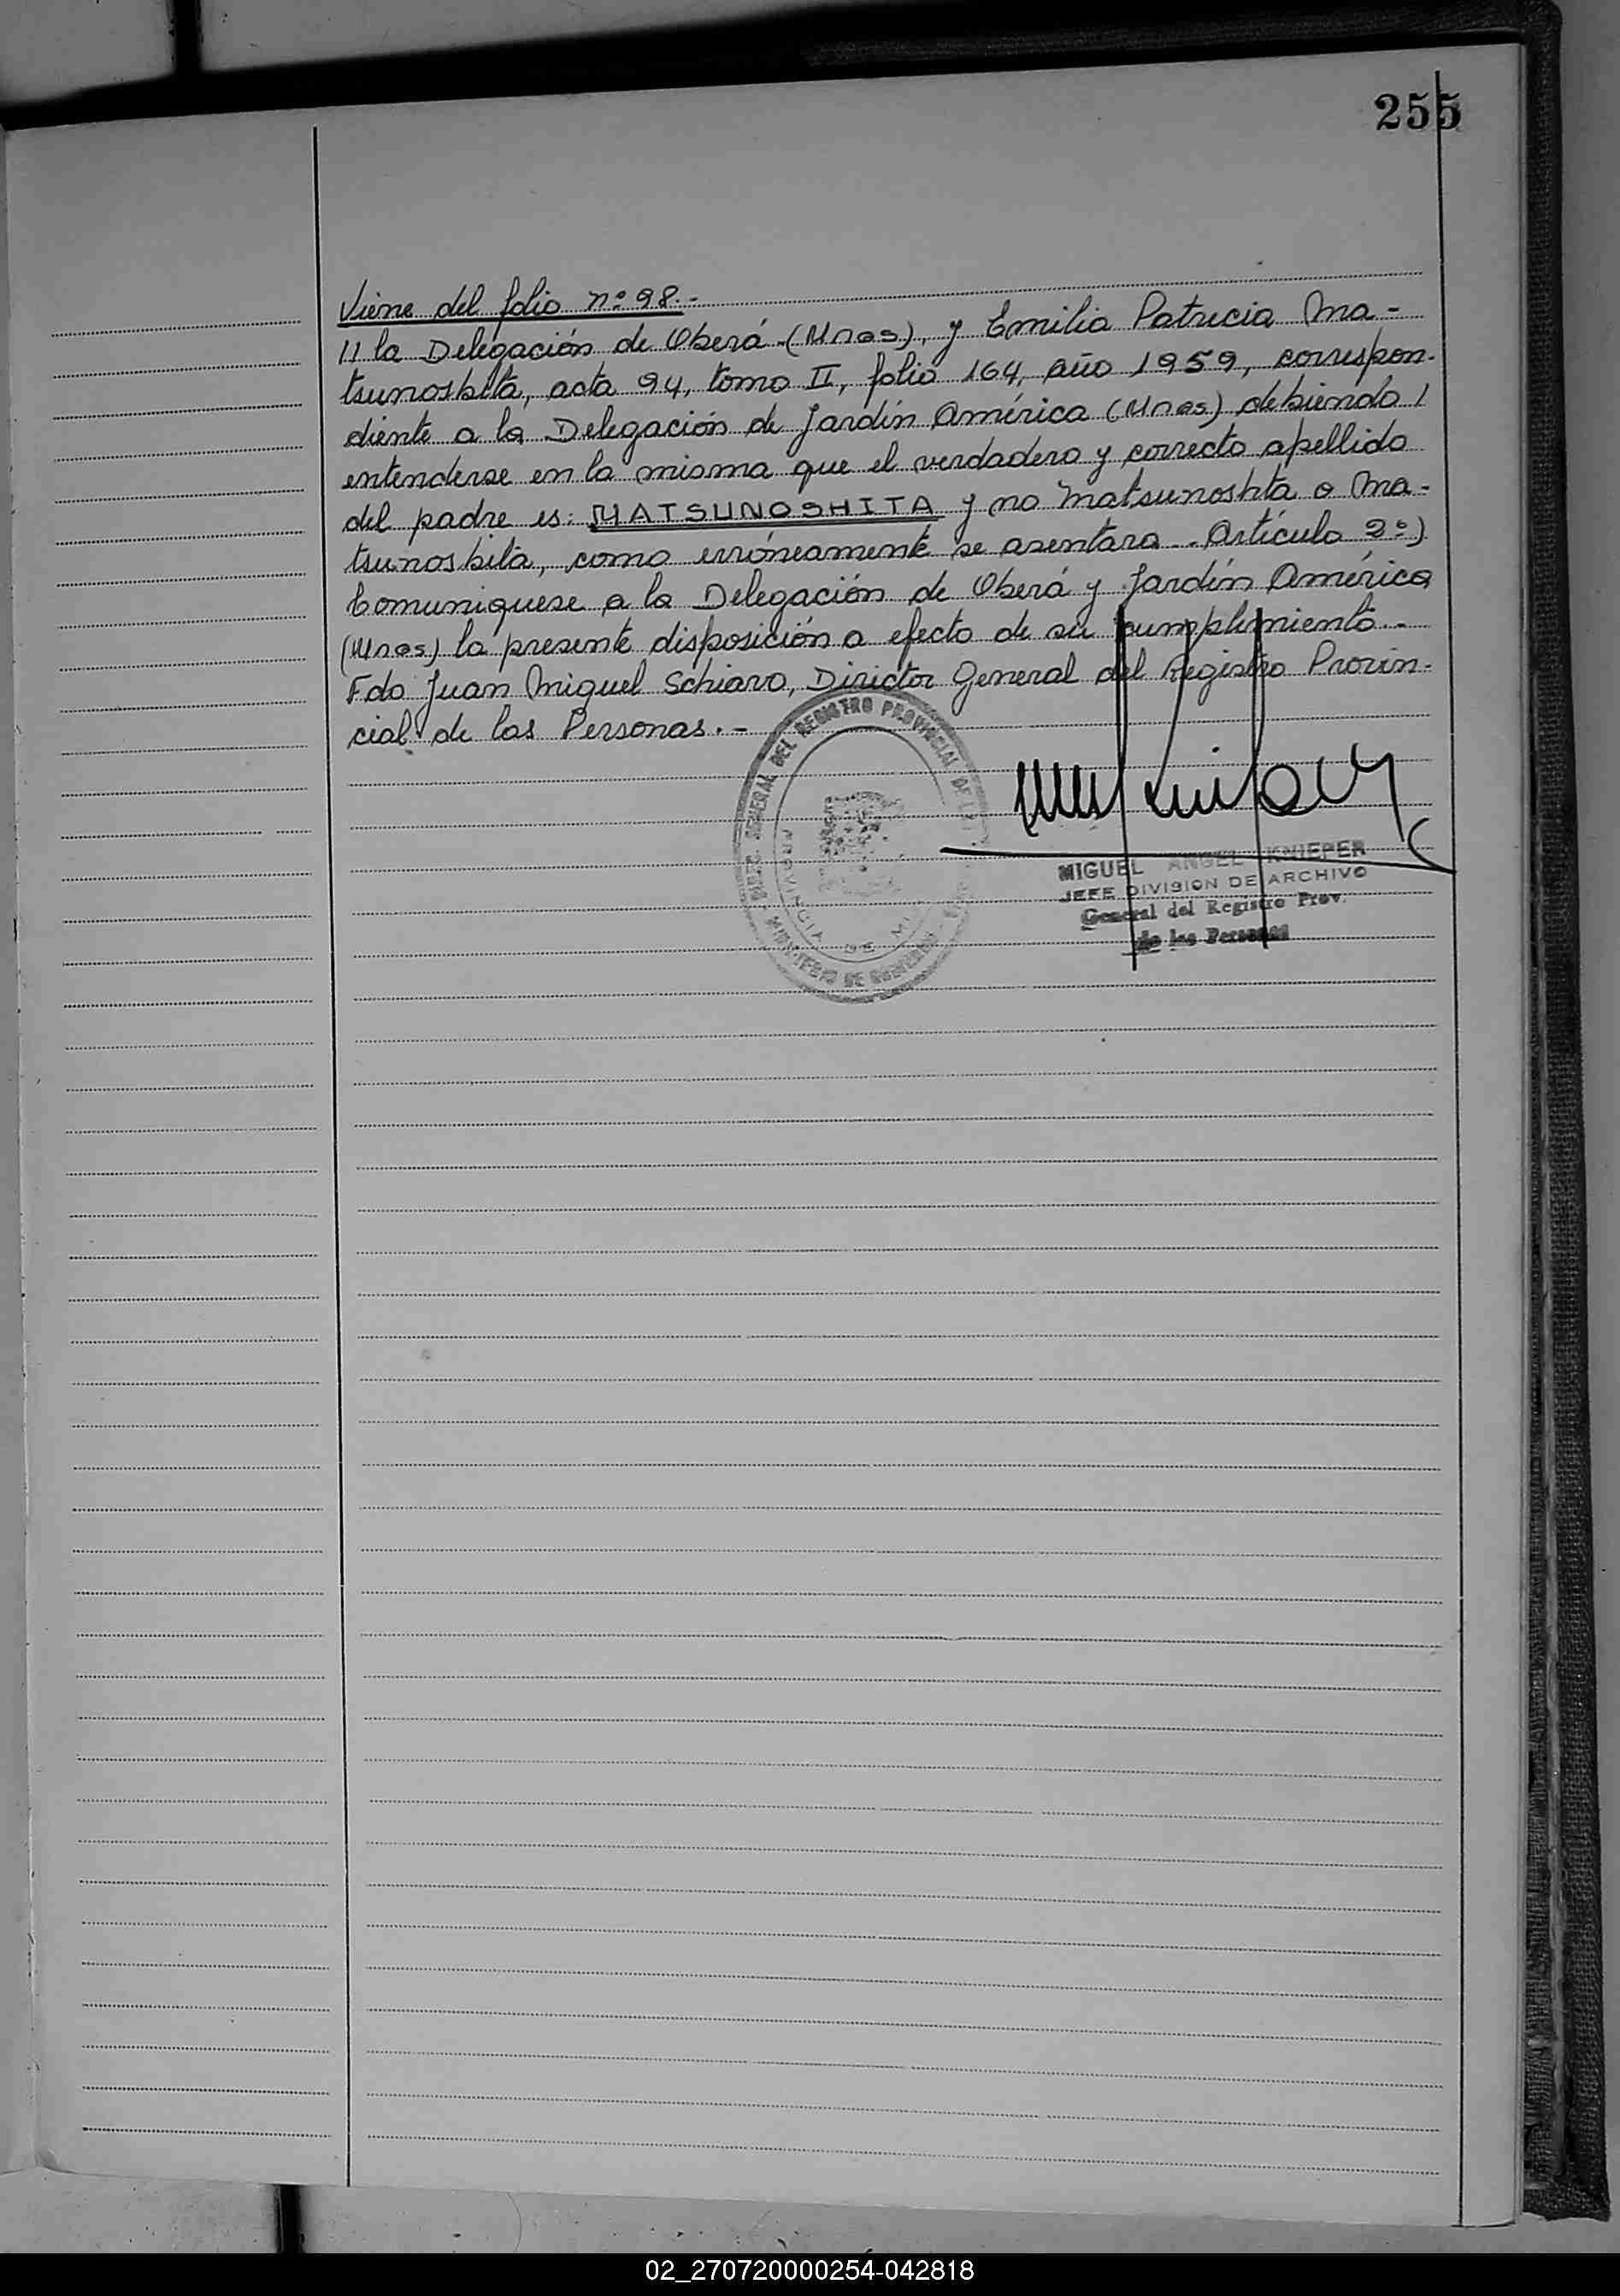 255
Viene del folio nº 98.-
// la Delegación de Oberá (Mnes), y Emilia Patricia Ma-
tsunoshita, acta 94, tomo II, folio 164, año 1959, correspon-
diente a la Delegación de Jardín América (Mnes) debiendo /
entenderse en la misma que el verdadero y correcto apellido
del padre es: MATSUNOSHITA y no Matsunoshta o Ma-
tsunosbita, como erróneamente se asentara.- Artículo 2º)
Comuniquese a la Delegación de Oberá y Jardín América
(Mnes) la presente disposición a efecto de su cumplimiento.-
Fdo Juan Miguel Schiavo, Director General del Registro Provin-
cial de las Personas.-
GENERAL DEL REGISTRO PROVINCIAL DE
PROVINCIA DE
MINISTERIO DE GOBIERNO
MIGUEL ANGEL KNIEPER
JEFE DIVISION DE ARCHIVO
General del Registro Prov.
de las Personas
02_270720000254-042818